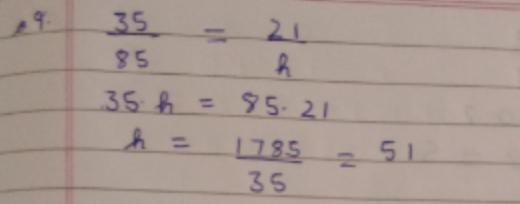 9. 35/85 = 21/h
35·h = 85·21
h = 1785/35 = 51